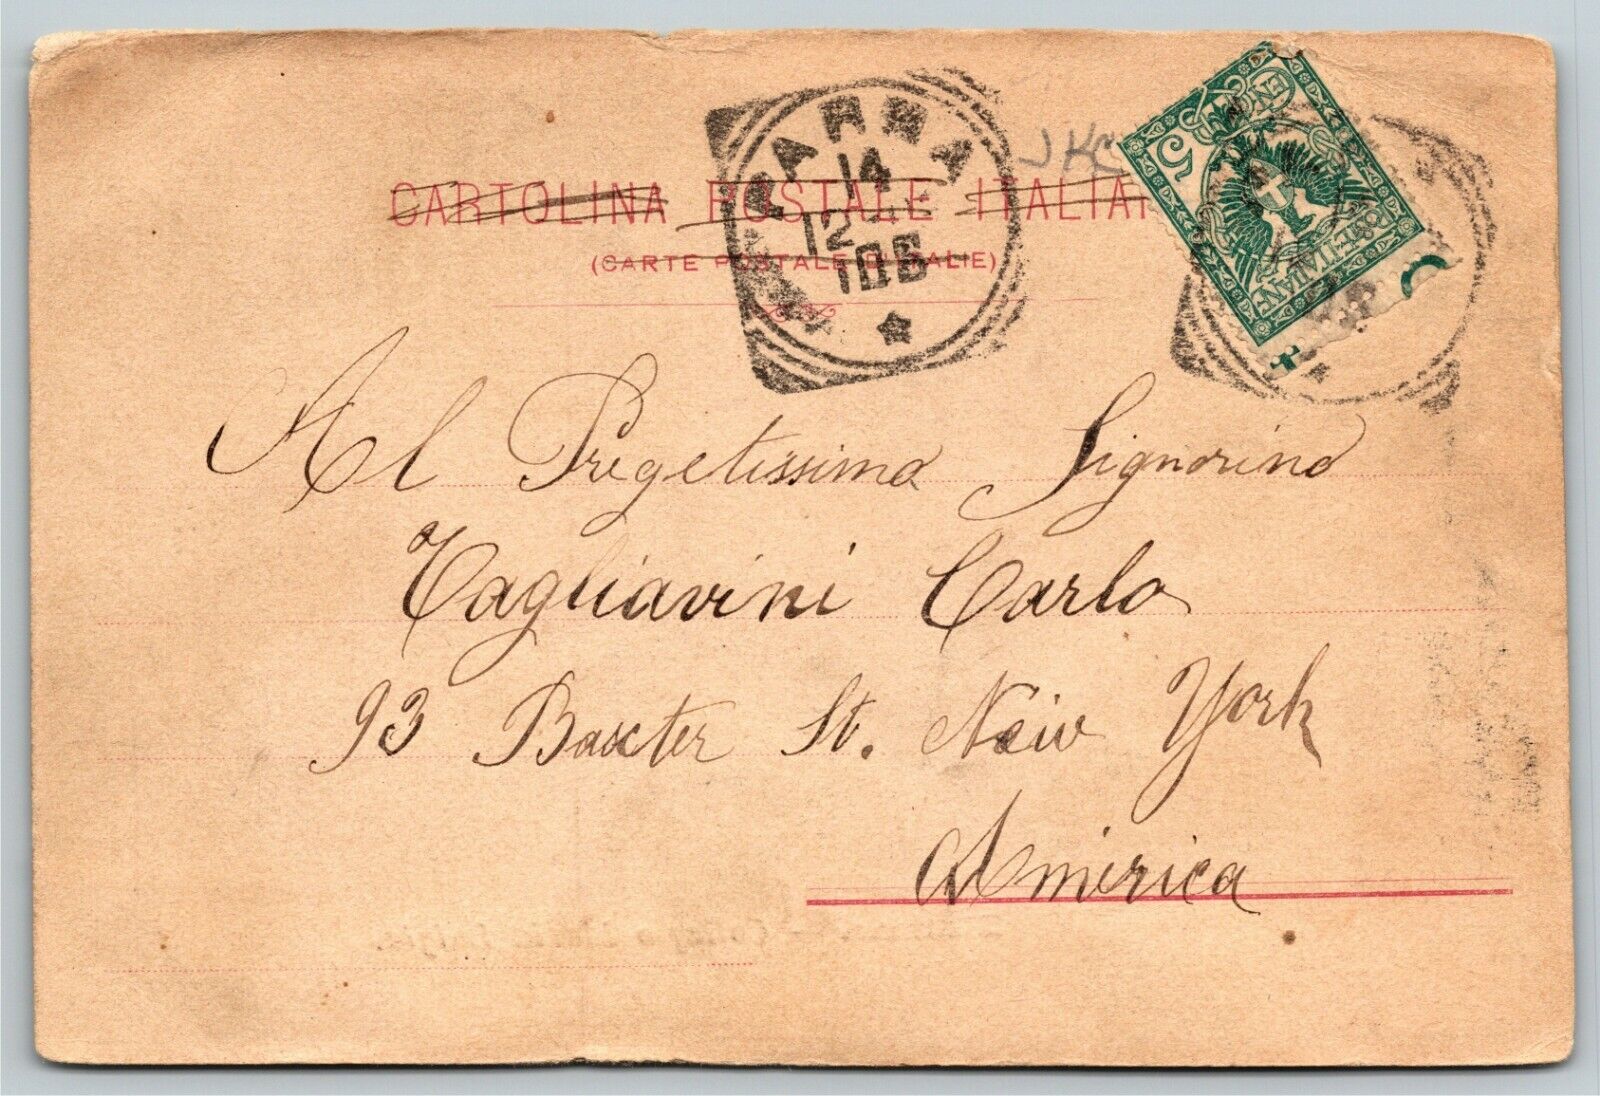 CARTOLINA POSTALE ITALIAN
(CARTE POSTALE D'ITALIE)
PARMA
14
12
106
JKC
5
POSTE ITALIANE
Al Pregetissimo Signorino
Tagliavini Carlo
93 Baxter St. New York
America